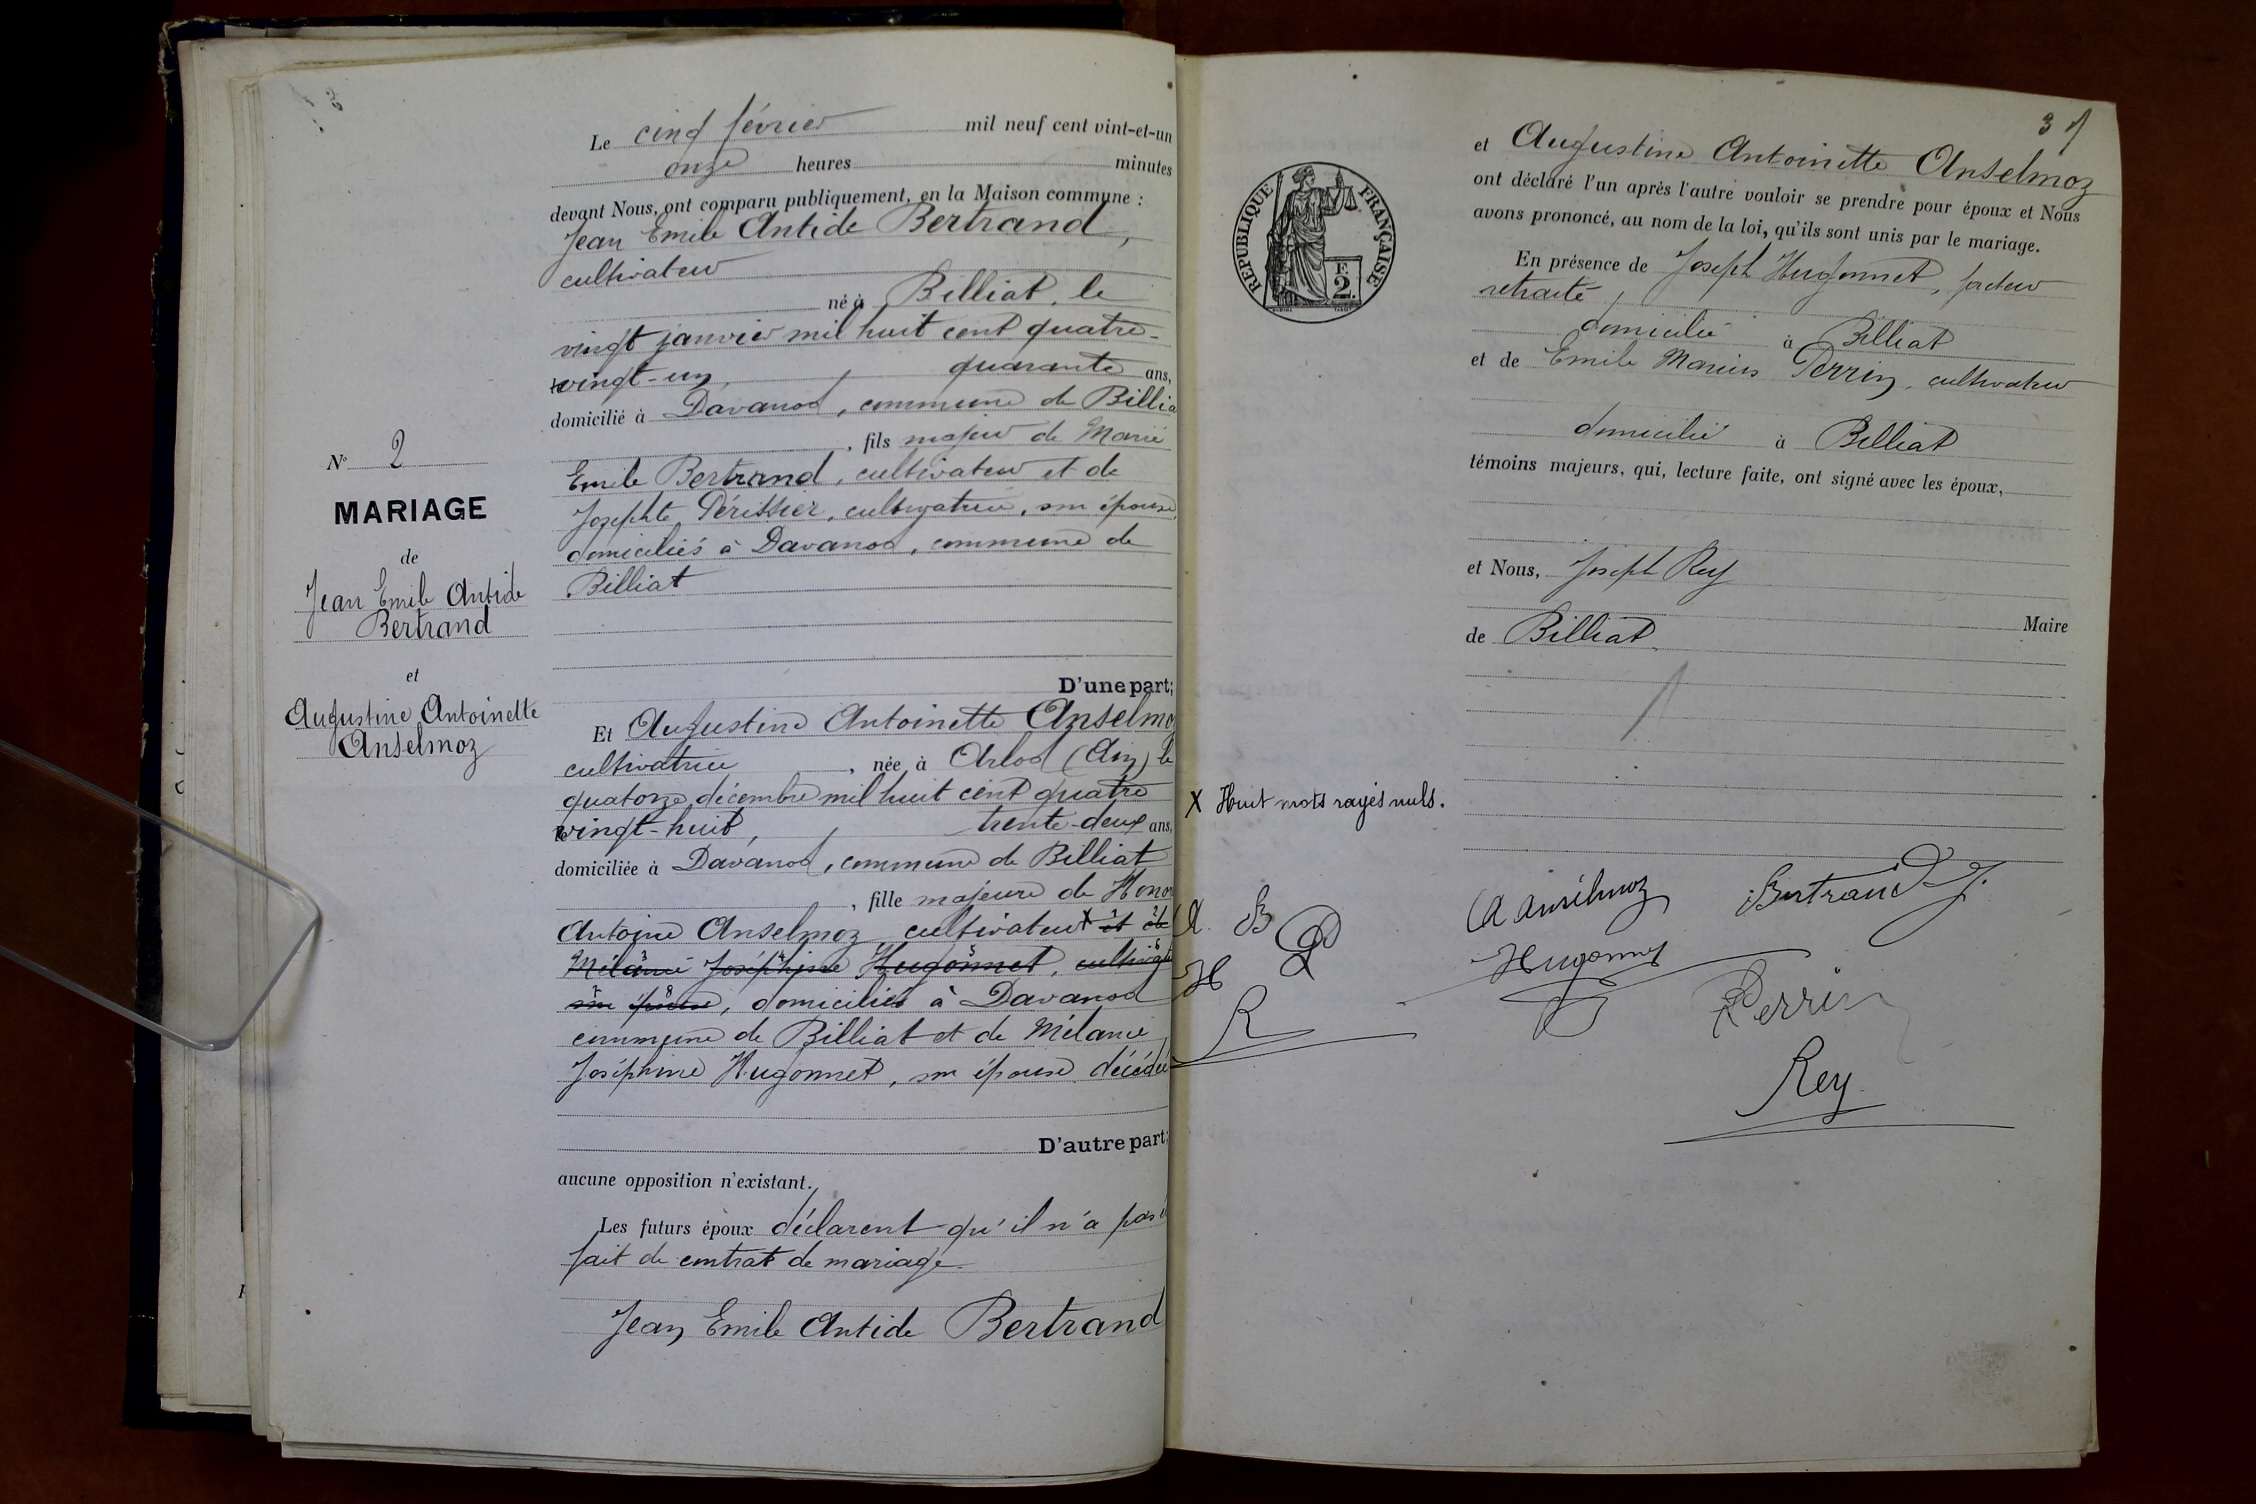 Le cinq février mil neuf cent vint-et-un
onze heures minutes
devant Nous, ont comparu publiquement, en la Maison commune :
Jean Emile Antide Bertrand,
cultivateur
né à Billiat, le
vingt janvier mil huit cent quatre-
vingt-un, quarante ans,
domicilié à Davanod, commune de Billia
, fils majeur de Marie
Emile Bertrand, cultivateur et de
Josephte Périssier, cultivatrice, son épouse,
domiciliés à Davanod, commune de
Billiat
D'une part;
N° 2
MARIAGE
de
Jean Emile Antide
Bertrand
et
Augustine Antoinette
Anselmoz
Et Augustine Antoinette Anselmo
cultivatrice, née à Arlod (Ain) le
quatorze décembre mil huit cent quatre
vingt-huit, trente-deux ans,
domiciliée à Davanod, commune de Billiat
, fille majeure de Honor
Antoine Anselmoz, cultivateur X et de
Mélanie Joséphine Hugonnet, cultivat
son épouse, domiciliés à Davanod
commune de Billiat et de Mélanie
Joséphine Hugonnet, son épouse décédée
D'autre part;
aucune opposition n'existant.
Les futurs époux déclarent qu'il n'a pas é
fait de contrat de mariage
Jean Emile Antide Bertrand
REPUBLIQUE FRANÇAISE
F.
2
et Augustine Antoinette Anselmoz
ont déclaré l'un après l'autre vouloir se prendre pour époux et Nous
avons prononcé, au nom de la loi, qu'ils sont unis par le mariage.
En présence de Joseph Hugonnet, facteur
retraité,
domicilié à Billiat
et de Emile Marius Perrin, cultivateur
domicilié à Billiat
témoins majeurs, qui, lecture faite, ont signé avec les époux,
et Nous, Joseph Rey
Maire
de Billiat
X Huit mots rayés nuls.
A. B P
H
R
A Anselmoz Bertrand J.
Hugonnet
Perrin
Rey